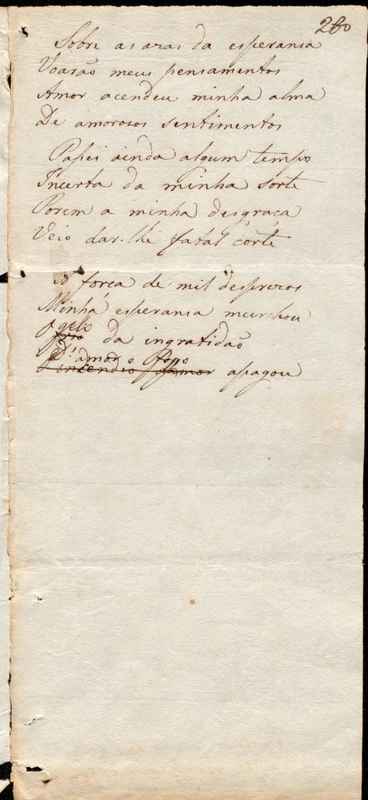 280
Sobre as azas da esperansa
Voarão meus pensamentos
Amor acendeu minha alma
De amorosos sentimentos
Pasei ainda algum tempo
Incerta da minha sorte
Porem a minha desgraça
Veio dar-lhe fatal corte
força de mil desprezos
Minha esperansa murchou
O gelo da ingratidão
D'amor o
O incendio d'amor apagou